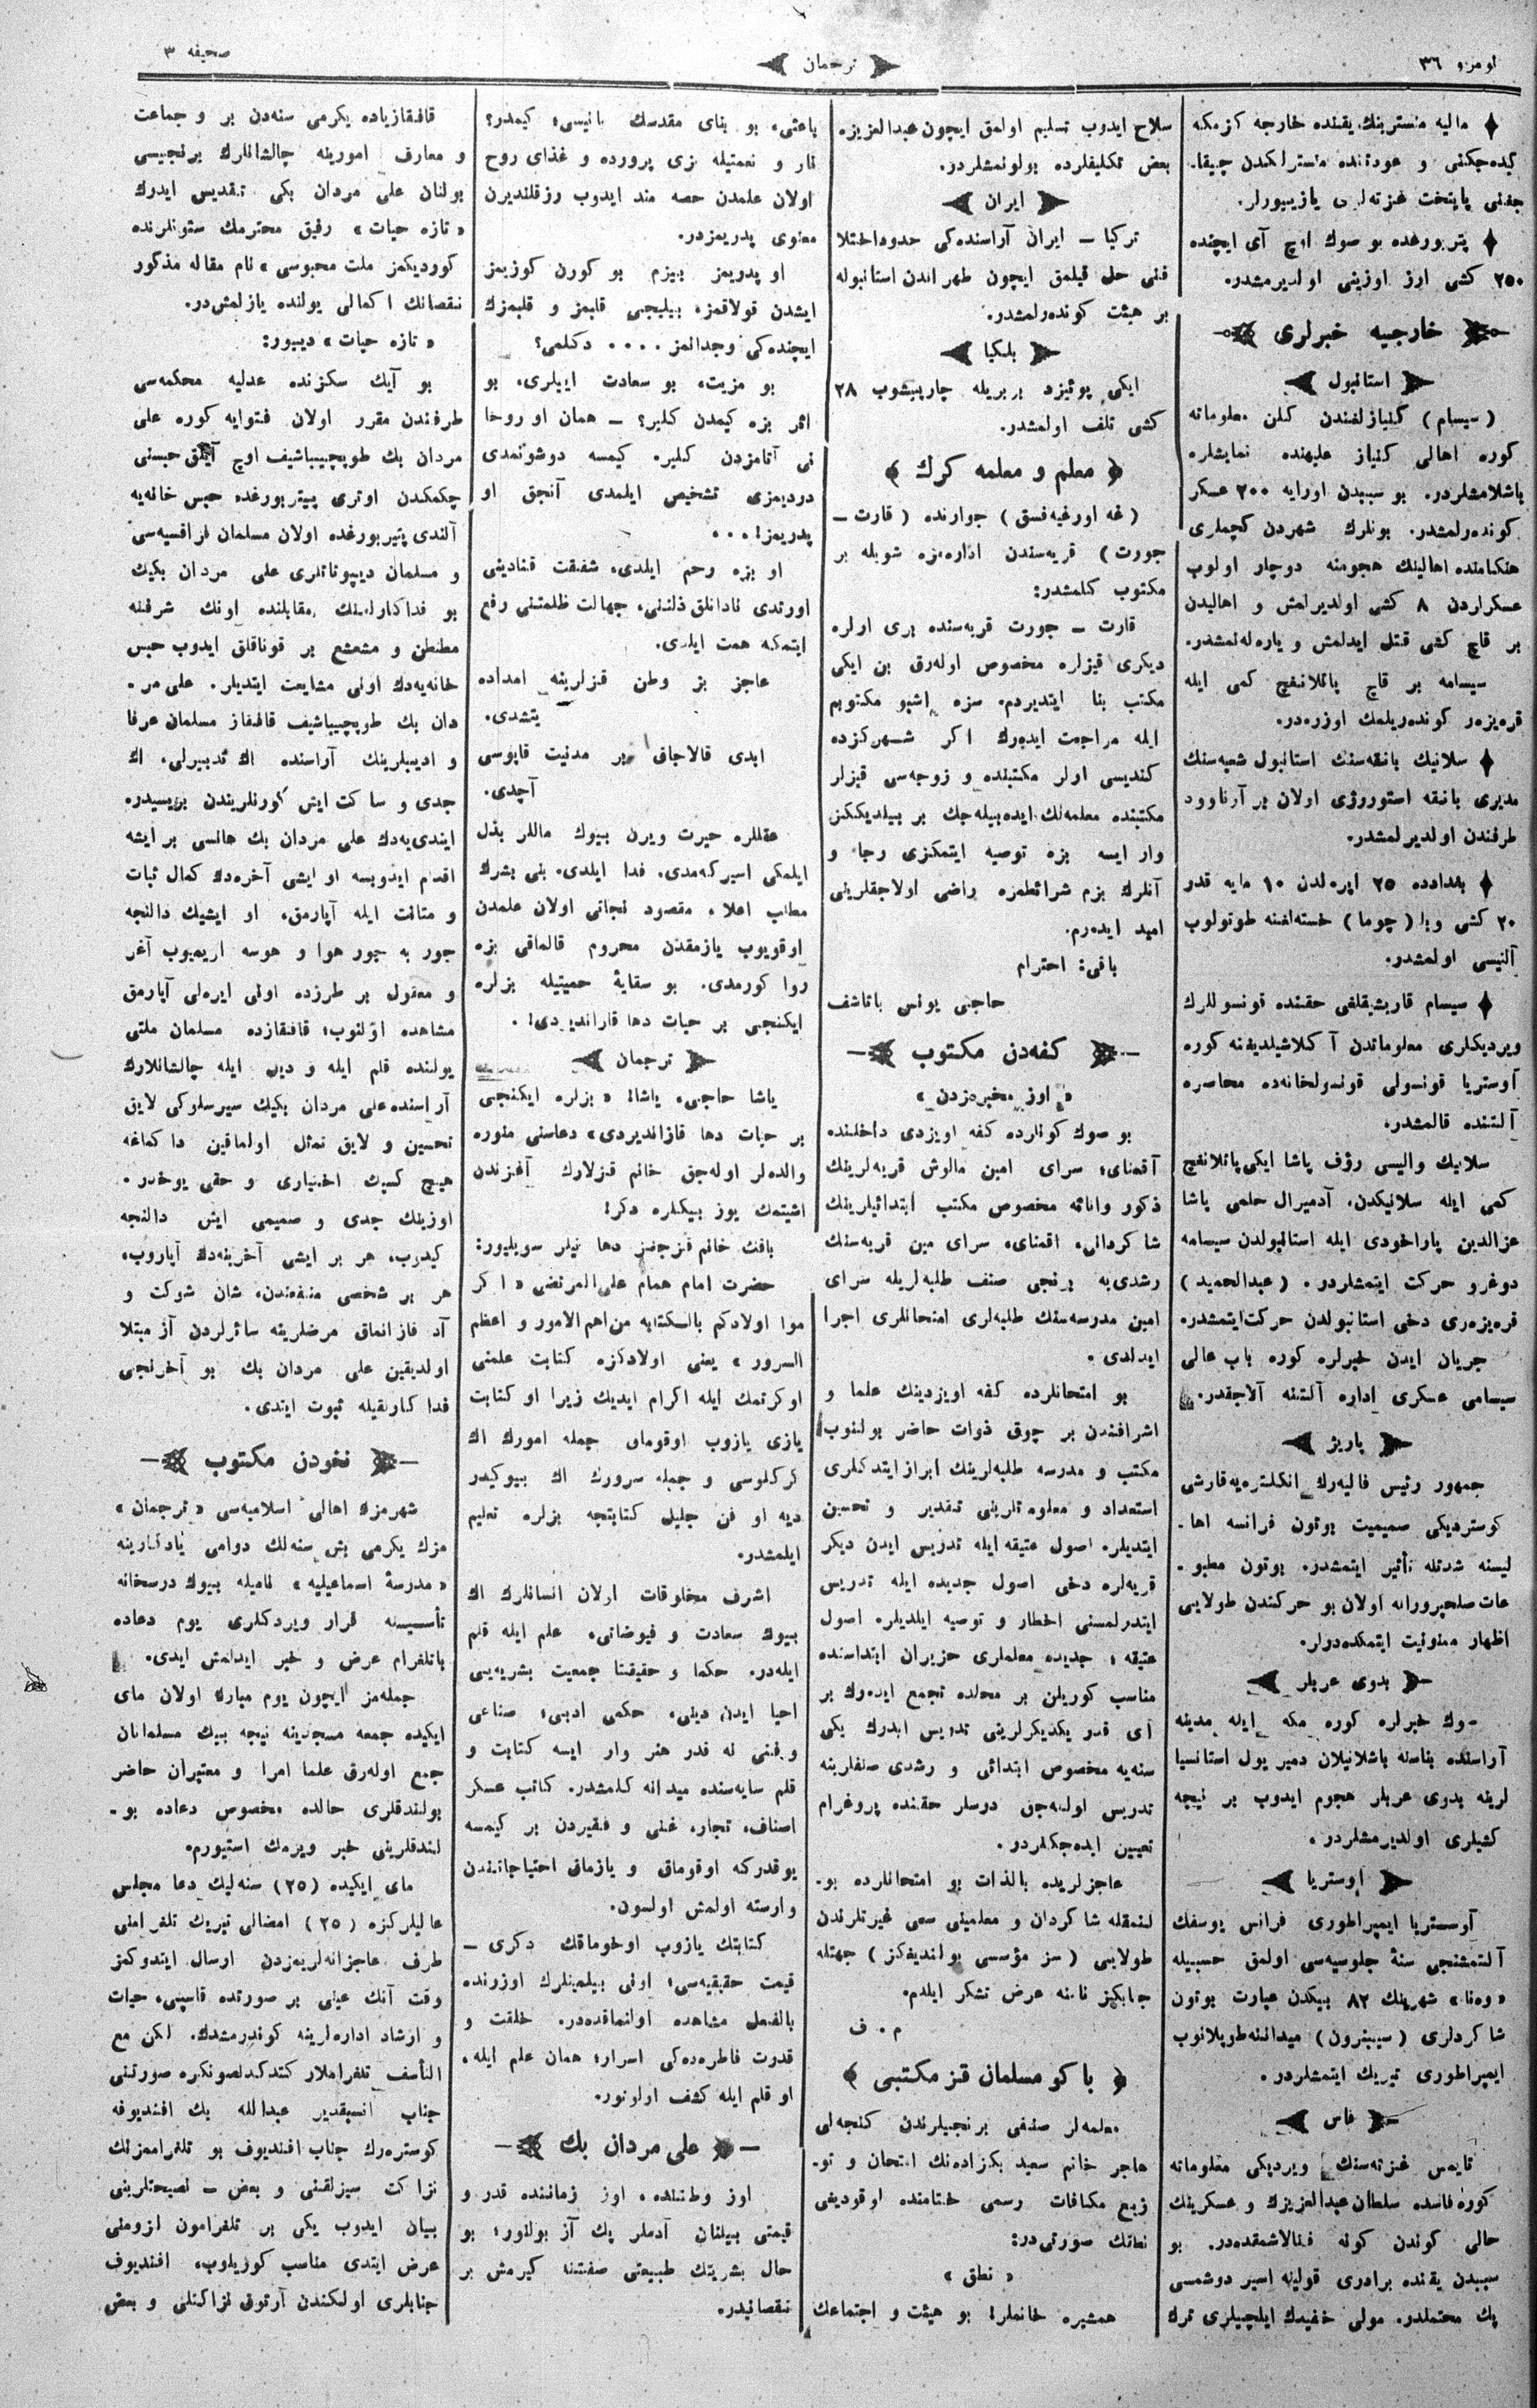 نومرو ٣٦
ترجمان
صحیفه ٣
مالیه منسترینك یقینده خارجه کزمکه
کیده‌جکنی و عودتنده منسترلکدن چیقا-
جغنی پایتخت غزته‌لری یازییورلر.
پتربورغده بو صوك اوچ آی ایچنده
٢٥٠ کشی اوز اوزینی اولدیرمشدر.
خارجیه خبرلری
استانبول
(سیسام) کنیازلغندن کلن معلوماته
کوره اهالی کنیاز علیهنده نمایشلره
باشلامشلردر. بو سببدن اورایه ٢٠٠ عسکر
کونده‌رلمشدر. بونلرك شهردن کچملری
هنکامنده اهالینك هجومنه دوچار اولوب
عسکرلردن ٨ کشی اولدیرلمش و اهالیدن
بر قاچ کشی قتل ایدلمش و یاره‌له‌نمشدر.
سیسامه بر قاچ پاتلانغچ کمی ایله
قره‌یزه‌ر کونده‌ریلمك اوزره‌در.
سلانیك بانقه‌سنك استانبول شعبه‌سنك
مدیری بانقه استوروژی اولان بر آرناوود
طرفندن اولدیرلمشدر.
بغدادده ٢٥ اپره‌لدن ١٠ مایه قدر
٢٠ کشی وبا (چوما) خسته‌لغنه طوتولوب
آلتیسی اولمشدر.
سیسام قاریشیقلغی حقنده قونسوللرك
ویردیکلری معلوماتدن آکلاشیلدیغنه کوره
آوستریا قونسولی قونسولخانه‌ده محاصره
آلتنده قالمشدر.
سلانیك والیسی رؤف پاشا ایکی پاتلانغچ
کمی ایله سلانیکدن، آدمیرال حلمی پاشا
عزالدین پاراخودی ایله استانبولدن سیسامه
دوغرو حرکت ایتمشلردر. (عبدالحمید)
قره‌یزه‌ری دخی استانبولدن حرکت ایتمشدر.
جریان ایدن خبرلره کوره باب عالی
سیسامی عسکری اداره آلتنه آلاجقدر.
پاریژ
جمهور رئیس فالیه‌رك انکلتره‌یه قارشی
کوستردیکی صمیمیت بوتون فرانسه اها-
لیسنه شدتله تأثیر ایتمشدر. بوتون مطبو-
عات صلحپرورانه اولان بو حرکتدن طولایی
اظهار ممنونیت ایتمکده‌درلر.
بدوی عربلر
صوك خبرلره کوره مکه ایله مدینه
آراسنده بناسنه باشلانیلان دمیر یول استانسیا
لرینه بدوی عربلر هجوم ایدوب بر نیچه
کشیلری اولدیرمشلردر.
اوستریا
آوستریا ایمپراطوری فرانس یوسفك
آلتمشنجی سنۀ جلوسیه‌سی اولمق حسبیله
«وه‌نا» شهرینك ٨٢ بیکدن عبارت بوتون
شاکردلری (سیبنرون) میداننه طوپلانوب
ایمپراطوری تبریك ایتمشلردر.
فاس
تایمس غزته‌سنك ویردیکی معلوماته
کوره فاسده سلطان عبدالعزیزك و عسکرینك
حالی کوندن کونه فنالاشمقده‌در. بو
سببدن یقنده برادری قولینه اسیر دوشمسی
پك محتملدر. مولی حفیدك ایلچیلری ترك
سلاح ایدوب تسلیم اولمق ایچون عبدالعزیزه
بعض تکلیفلرده بولونمشلردر.
ایران
ترکیا – ایران آراسنده‌کی حدود اختلا
فنی حل قیلمق ایچون طهراندن استانبوله
بر هیئت کونده‌رلمشدر.
بلکیا
ایکی پوئیزد بربریله چارپیشوب ٢٨
کشی تلف اولمشدر.
معلم و معلمه کرك
(غه اورغیه‌فسق) جوارنده (قارت –
جورت) قریه‌سندن اداره‌مزه شویله بر
مکتوب کلمشدر:
قارت – جورت قریه‌سنده بری اولره
دیکری قیزلره مخصوص اوله‌رق بن ایکی
مکتب بنا ایتدیردم. سزه اشبو مکتوبم
ایله مراجعت ایدیورك اکر شهرکزده
کندیسی اولر مکتبنده و زوجه‌سی قیزلر
مکتبنده معلمه‌لك ایده‌بیله‌جك بر بیلدیککز
وار ایسه بزه توصیه ایتمکزی رجا و
آنلرك بزم شرائطمزه راضی اولاجقلرینی
امید ایده‌رم.
باقی: احترام
حاجی یونس باتاشف
کفه‌دن مکتوب
« اوز مخبرمزدن »
بو صوك کونلرده کفه اویزدی داخلنده
آقمنای، سرای امین مالوش قریه‌لرینك
ذکور واناثه مخصوص مکتب ابتدائیلرینك
شاکردانی، اقمنای، سرای مین قریه‌سنك
رشدی‌یه برنجی صنف طلبه‌لریله سرای
امین مدرسه‌سنك طلبه‌لری امتحانلری اجرا
ایدلدی.
بو امتحانلرده کفه اویزدینك علما و
اشرافندن بر چوق ذوات حاضر بولنوب
مکتب و مدرسه طلبه‌لرینك ابراز ایتدکلری
استعداد و معلوماتلرینی تقدیر و تحسین
ایتدیلر. اصول عتیقه ایله تدریس ایدن دیکر
قریه‌لره دخی اصول جدیده ایله تدریس
ایتدرلمسنی اخطار و توصیه ایلدیلر. اصول
عتیقه و جدیده معلملری حزیران ابتداسنده
مناسب کوریلن بر محلده تجمع ایده‌رك بر
آی قدر یکدیکرلرینی تدریس ایدرك یکی
سنه‌یه مخصوص ابتدائی و رشدی صنفلرینه
تدریس اولنه‌جق درسلر حقنده پروغرام
تعیین ایده‌جکلردر.
عاجزلریده بالذات بو امتحانلرده بو-
لنمقله شاکردان و معلمینی سعی غیرتلرندن
طولایی (سز مؤسسی بولندیغکز) جهتله
جنابکیز نامنه عرض تشکر ایلدم.
م. ف
باکو مسلمان قز مکتبی
معلمه‌لر صنفی برنجیلرندن کنجه‌لی
هاجر خانم سعید بکزاده‌نك امتحان و تو-
زیع مکافات رسمی ختامنده اوقودیغی
نطقك صورتی‌در:
« نطق »
همشیره خانملر! بو هیئت و اجتماعك
باعثی، بو بنای مقدسك بانیسی، کیمدر؟
نار و نعمتیله بزی پرورده و غذای روح
اولان علمدن حصه مند ایدوب رزقلندیرن
معنوی پدریمزدر.
او پدریمز بیزم بو کورن کوزیمز
ایشدن قولاقمز، بیلیجی قلبمز و قلبمزك
ایچنده‌کی وجدانمز .... دکلمی؟
بو مزیت، بو سعادت ایپلری، بو
اثر بزه کیمدن کلیر؟ – همان او روحا
نی آتامزدن کلیر. کیمسه دوشونمدی
دردیمزی تشخیص ایلمدی آنجق او
پدریمز!...
او بزه رحم ایلدی، شفقت قنادینی
اورتدی نادانلق ذلتنی، جهالت ظلمتنی رفع
ایتمکه همت ایلدی.
عاجز بز وطن قزلرینه امداده
یتشدی.
ابدی قالاجاق بر مدنیت قاپوسی
آچدی.
عقللره حیرت ویرن بیوك ماللر بذل
ایلمکی اسیرکه‌مدی. فدا ایلدی. بنی بشرك
مطلب اعلا، مقصود نجاتی اولان علمدن
اوقویوب یازمقدن محروم قالماقی بزه
روا کورمدی. بو سقایۀ حمیتیله بزلره
ایکنجی بر حیات دها قازاندیردی!.
ترجمان
یاشا حاجی، یاشا! «بزلره ایکنجی
بر حیات دها قازاندیردی» دعاسنی منوره
والده‌لر اوله‌جق خانم قزلارك آغزندن
اشیتمك یوز بیکلره دکر!
باقك خانم قزجغز دها نیلر سویلیور:
حضرت امام همام علی المرتضی «اکر
موا اولادکم بالکتابه من اهم الامور و اعظم
السرور» یعنی اولادکزه کتابت علمنی
اوکرتمك ایله اکرام ایدیك زیرا او کتابت
یازی یازوب اوقومای جمله امورك اك
کرکلوسی و جمله سرورك اك بیوکیدر
دیه او فن جلیل کتابتجه بزلره تعلیم
ایلمشدر.
اشرف مخلوقات اولان انسانلرك اك
بیوك سعادت و فیوضاتی، علم ایله قلم
ایله‌در. حکما و حقیقتا جمعیت بشریه‌یی
احیا ایدن دینی، حکمی ادبی، صناعی
و فنی نه قدر هنر وار ایسه کتابت و
قلم سایه‌سنده میدانه کلمشدر. کاتب عسکر
اصناف، تجار، غنی و فقیردن بر کیمسه
یوقدرکه اوقوماق و یازماق احتیاجاتندن
وارسته اولمش اولسون.
کتابتك یازوب اوخوماقك دکری –
قیمت حقیقیه‌سی، اونی بیلمینلرك اوزرنده
بالفعل مشاهده اولنماقده‌در. خلقت و
قدرت فاطره‌ده‌کی اسرار، همان علم ایله،
او قلم ایله کشف اولونور.
علی مردان بك
اوز وطننده، اوز زماننده قدر و
قیمتی بیلنان آدملر پك آز بولنور، بو
حال بشریتك طبیعتی صفتنه کیرمش بر
نقصانیدر.
قافقازیاده یکرمی سنه‌دن بر و جماعت
و معارف امورینه چالشانلرك برنجیسی
بولنان علی مردان بکی تقدیس ایدرك
«تازه حیات» رفیق محترمك ستونلرنده
کوردیکمز ملت محبوسی» نام مقاله مذکور
نقصانك اکمالی یولنده یازلمش‌در.
«تازه حیات» دییور:
بو آیك سکزنده عدلیه محکمه‌سی
طرفندن مقرر اولان فتوایه کوره علی
مردان بك طوپچیباشیف اوچ آیلق حبسنی
چکمکدن اوتری پیتربورغده حبس خانه‌یه
آلندی پتیربورغده اولان مسلمان فراقسیه‌سی
و مسلمان دیپوتاتلری علی مردان بکیك
بو فداکارلغنك مقابلنده اونك شرفنه
مطنطن و مشعشع بر قوناقلق ایدوب حبس
خانه‌یه‌دك اونی مشایعت ایتدیلر. علی مر-
دان بك طوپچیباشیف قافقاز مسلمان عرفا
و ادیبلرینك آراسنده اك تدبیرلی، اك
جدی و ساکت ایش کورنلریندن بریسیدر.
ایندی‌یه‌دك علی مردان بك هانسی بر ایشه
اقدام ایدوبسه او ایشی آخره‌دك کمال ثبات
و متانت ایله آپارمق، او ایشیك دالنجه
جور به جور هوا و هوسه اریمیوب آغر
و معقول بر طرزده اونی ایره‌لی آپارمق
مشاهده اولنوب، قافقازده مسلمان ملتی
یولنده قلم ایله و دیل ایله چالشانلارك
آراسنده علی مردان بکیك سیرسلوکی لایق
تحسین و لایق تمثل اولماقین داکماغه
هیچ کسیك اختیاری و حقی یوخدر.
اوزینك جدی و صمیمی ایش دالنجه
کیدوب، هر بر ایشی آخرینه‌دك آپاروب،
هر بر شخصی منفعتدن، شان شوکت و
آد قازانماق مرضلرینه سائرلردن آز مبتلا
اولدیقین علی مردان بك بو آخرنجی
فدا کارلقیله ثبوت ایتدی.
نخودن مکتوب
شهرمزك اهالی اسلامیه‌سی «ترجمان»
مزك یکرمی بش سنه‌لك دوامی یادگارینه
«مدرسۀ اسماعیلیه» نامیله بیوك درسخانه
تأسیسنه قرار ویردکلری یوم دعاده
باتلغرام عرض و خبر ایدلمش ایدی.
جمله‌مز ایچون یوم مبارك اولان مای
ایکیده جمعه مسجدینه نیچه بیك مسلمانان
جمع اوله‌رق علما امرا و معتبران حاضر
بولندقلری حالده مخصوص دعاده بو-
لندقلرینی خبر ویرمك استیورم.
مای ایکیده (٢٥) سنه‌لیك دعا مجلس
عالیلرکزه (٢٥) امضالی تبریك تلغرامنی
طرف عاجزانه‌لریمزدن ارسال ایتدوکمز
وقت آنك عینی بر صورتده قاسپی، حیات
و ارشاد اداره‌لرینه کوندرمشدك. لکن مع
التأسف تلغراملار کتدکدنصونکره صورتنی
جناب انسپقدیر عبدالله بك افندیوفه
کوستره‌رك جناب افندیوف بو تلغرامزنك
نزاکت سیزلقنی و بعض – نصیحتلرینی
بیان ایدوب یکی بر تلغرامون لزومنی
عرض ایتدی مناسب کوریلوب، افندیوف
جنابلری اولکندن آرتوق نزاکتلی و بعض